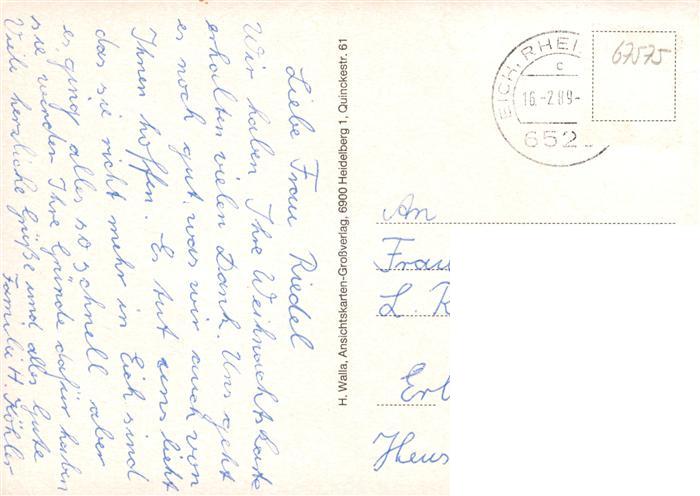 Liebe Frau Riedel
Wir haben Ihre Weihnachtskarte
erhalten vielen Dank. Uns geht
es noch gut, was wir auch von
Ihnen hoffen. Es tut uns leicht
das sie nicht mehr in Eich sind
es ging alles so schnell aber
sie werden Ihre Gründe dafür haben
Viele herzliche Grüße und alles Gute
Familie H. Köhler
H. Walla, Ansichtskarten-Großverlag, 6900 Heidelberg 1, Quinckestr. 61
EICH, RHEI
c
16.-2.89-
652
67575
An
Frau
L. R
Erl
Heus